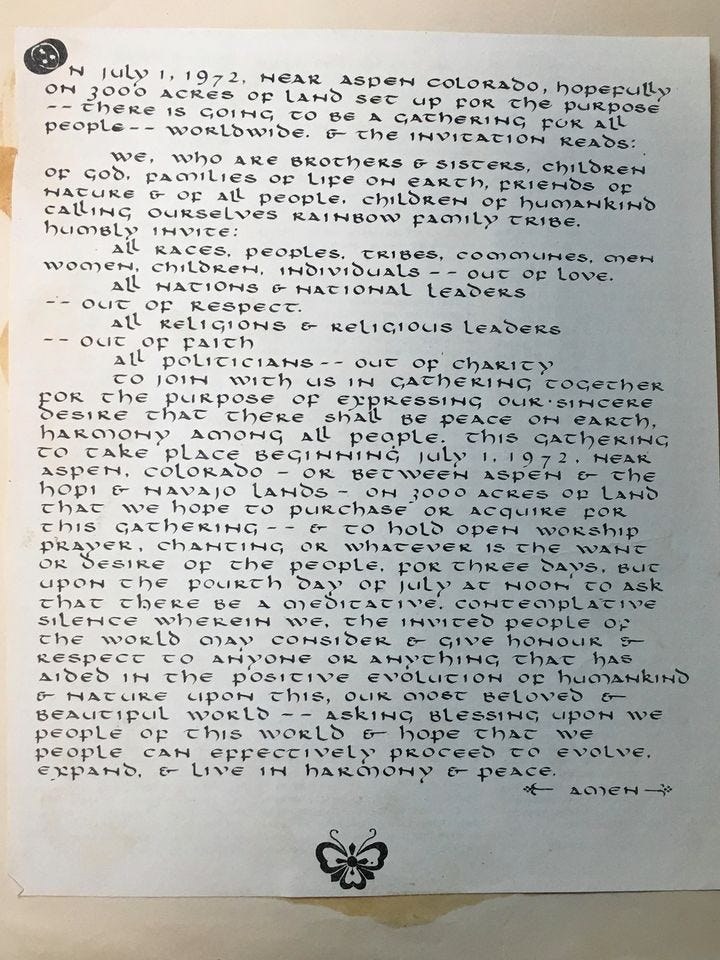 On July 1, 1972, near Aspen Colorado, hopefully
on 3000 acres of land set up for the purpose
-- there is going to be a gathering for all
people -- worldwide. & the invitation reads:
We, who are brothers & sisters, children
of God, families of life on earth, friends of
nature & of all people, children of humankind
calling ourselves Rainbow Family Tribe.
humbly invite:
All races, peoples, tribes, communes, men
women, children, individuals -- out of love.
All nations & national leaders
-- out of respect.
All religions & religious leaders
-- out of faith
All politicians -- out of charity
to join with us in gathering together
for the purpose of expressing our sincere
desire that there shall be peace on earth,
harmony among all people. This gathering
to take place beginning July 1, 1972, near
Aspen, Colorado - or between Aspen & the
Hopi & Navajo lands - on 3000 acres of land
that we hope to purchase or acquire for
this gathering -- & to hold open worship
prayer, chanting or whatever is the want
or desire of the people, for three days, but
upon the fourth day of July at noon to ask
that there be a meditative, contemplative
silence wherein we, the invited people of
the world may consider & give honour &
respect to anyone or anything that has
aided in the positive evolution of humankind
& nature upon this, our most beloved &
beautiful world -- asking blessing upon we
people of this world & hope that we
people can effectively proceed to evolve,
expand, & live in harmony & peace.
Amen